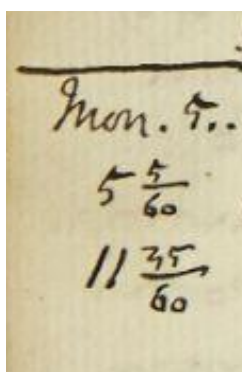 Mon. 5..
5 5/60
11 35/60